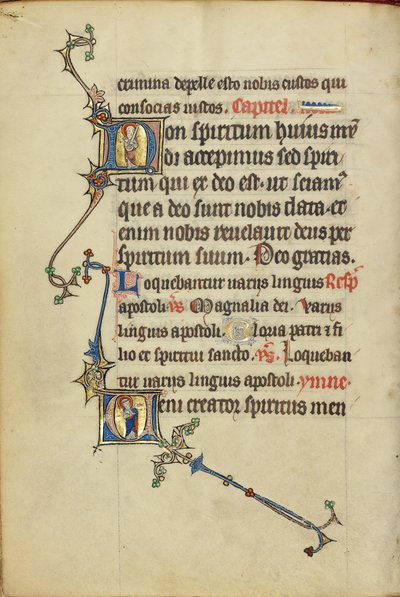 crimina depelle esto nobis custos qui
consocias iustos. Capitel.
Non spiritum huius mu̅
di accepimus sed spiri
tum qui ex deo est. ut sciam᷒
que a deo sunt nobis data. et
enim nobis reuelauit deus per
spiritum suum. Deo gratias.
Loquebantur uarijs linguis Resp̅
apostoli. V̅s. Magnalia dei. Varijs
linguis apostoli. Gloria patri & fi
lio et spiritui sancto. V̅s. Loqueban
tur uarijs linguis apostoli. ymne.
Veni creator spiritus men